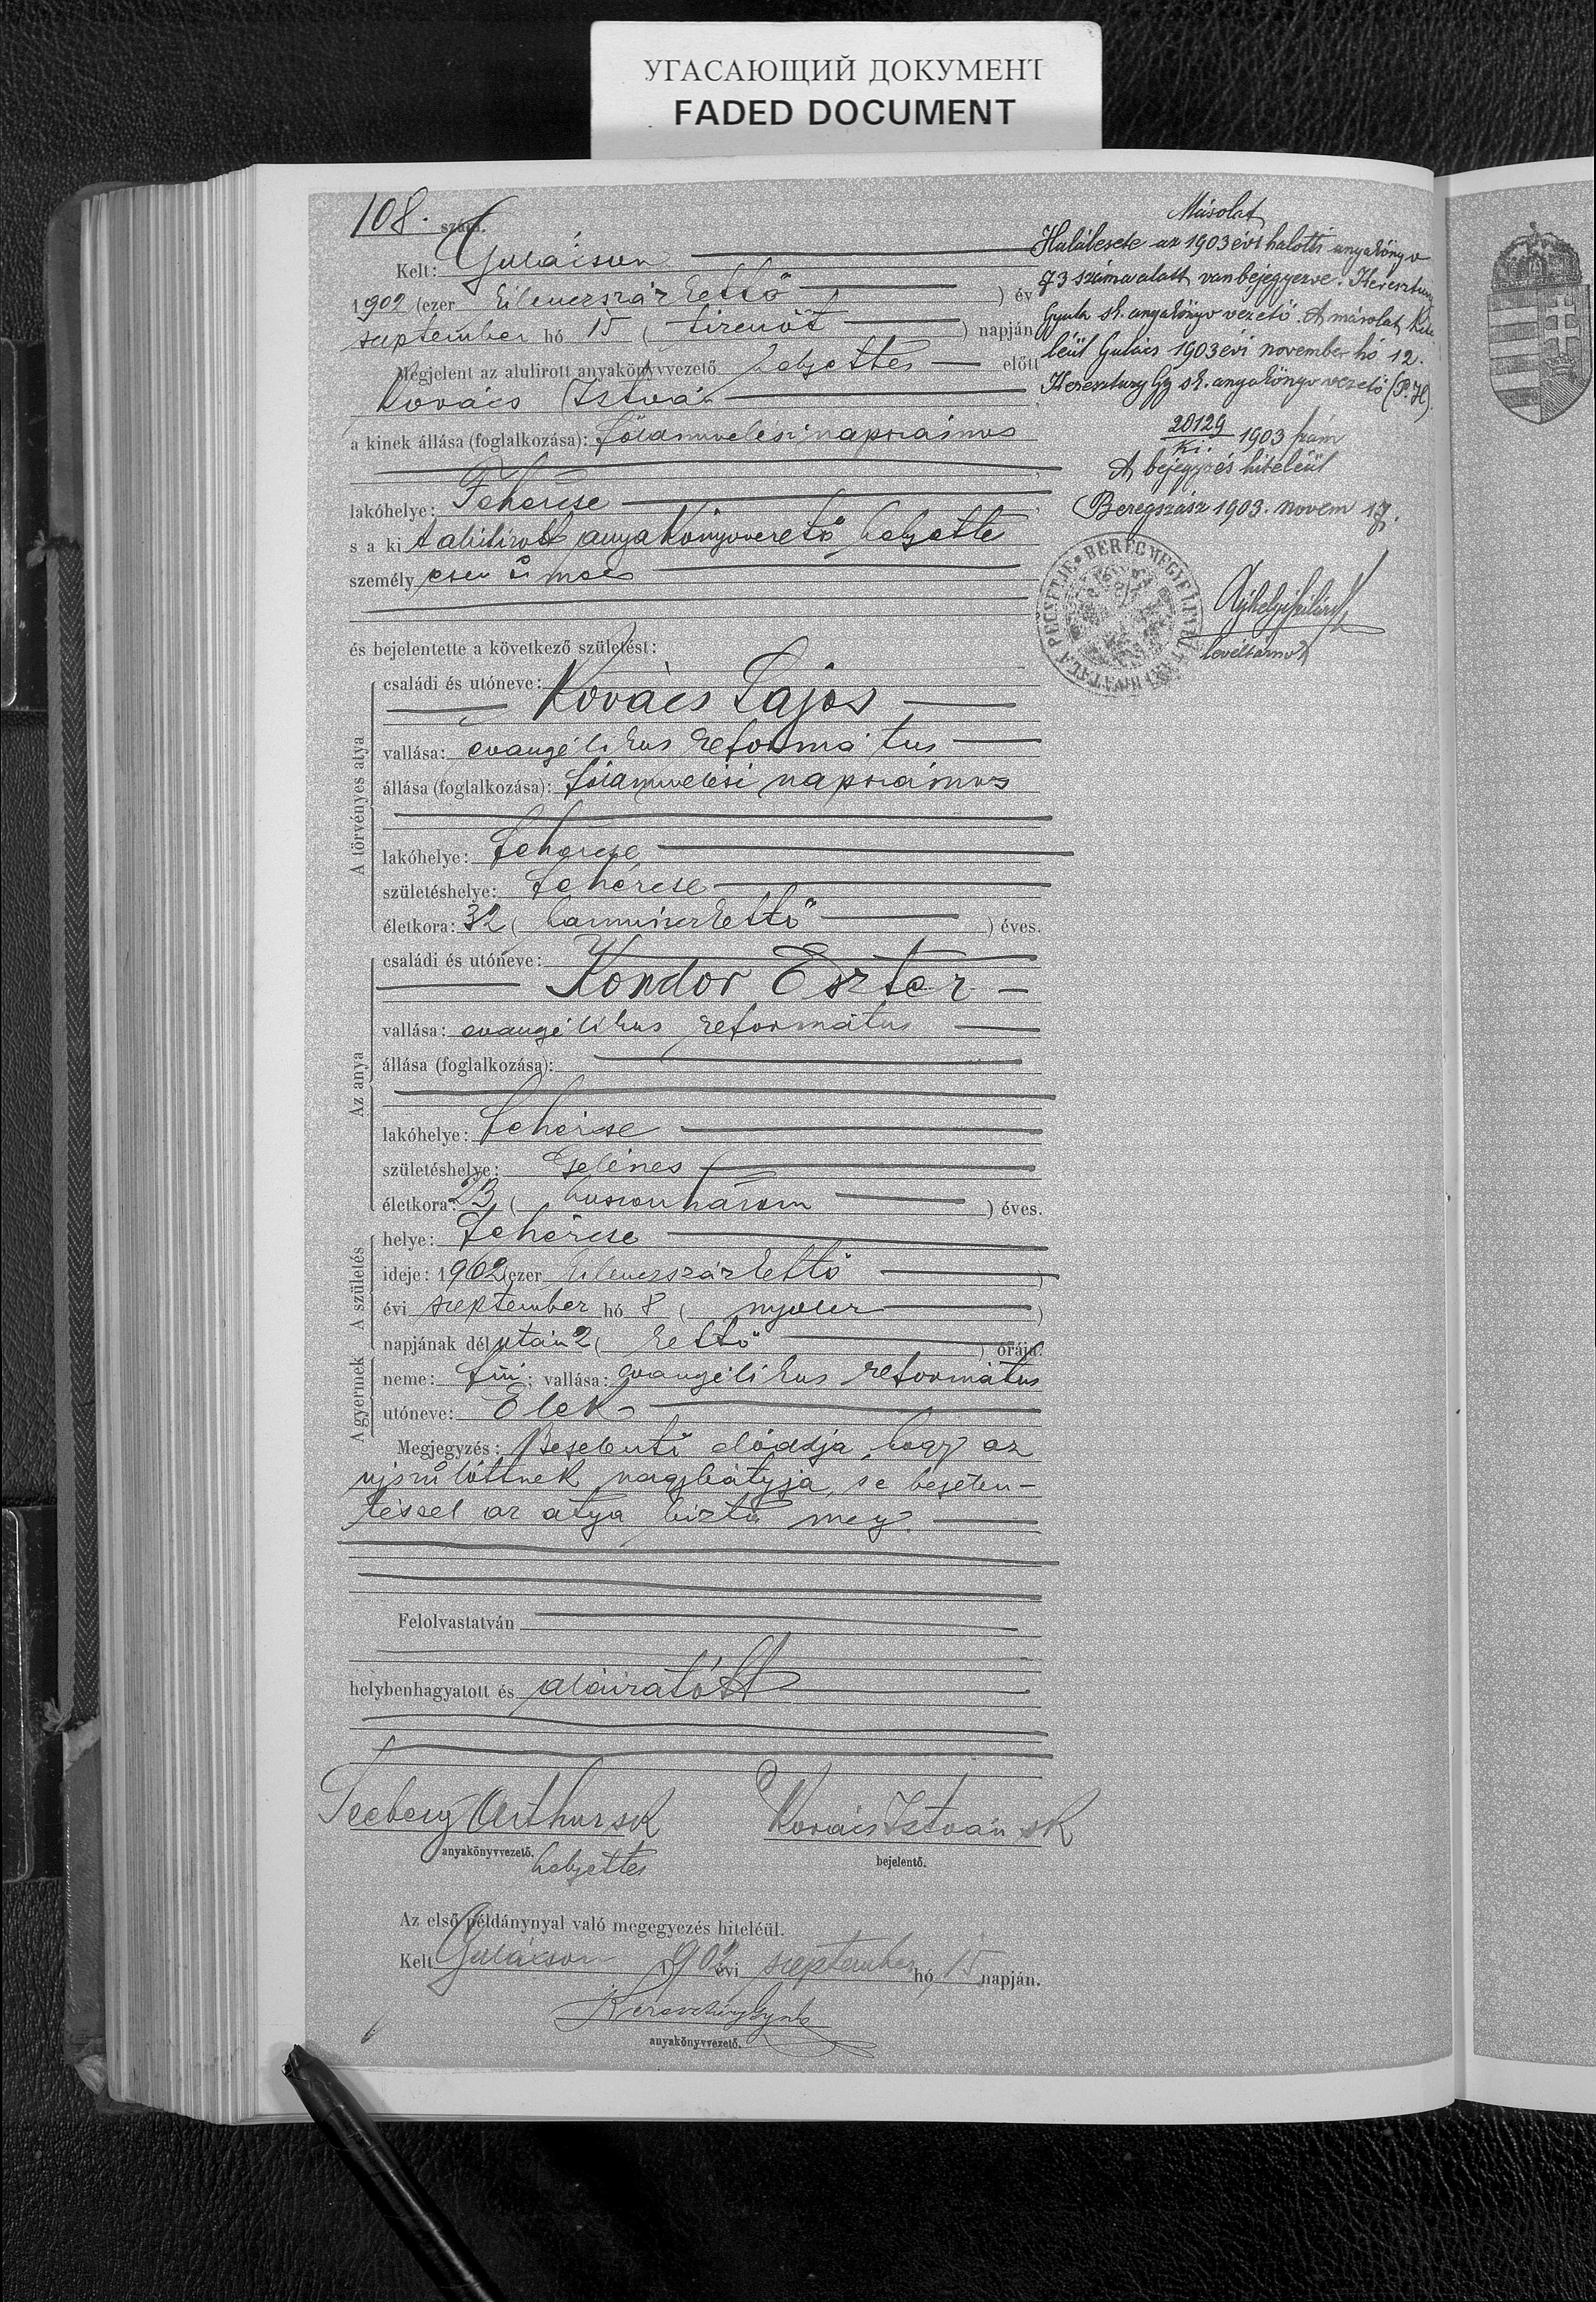 УГАСАЮЩИЙ ДОКУМЕНТ
FADED DOCUMENT
108. szám.
Kelt: Gulácson
1902 (ezer kilenczszázkettő) év
september hó 15 (tizenöt) napján
Megjelent az alulirott anyakönyvvezető helyettes előtt
Kovács István
a kinek állása (foglalkozása): földmivelési napszámos
lakóhelye: Fehércse
s a ki t alulirott anyakönyvvezető helyette
személyesen ismer
és bejelentette a következő születést:
A törvényes atya
családi és utóneve:
Kovács Lajos
vallása: evangélikus református
állása (foglalkozása): földmivelési napszámos
lakóhelye: Fehércse
születéshelye: Fehércse
életkora: 32 (harminczkettő) éves.
Az anya
családi és utóneve:
Kondor Eszter
vallása: evangélikus református
állása (foglalkozása):
lakóhelye: Fehércse
születéshelye: Gelénes
életkora: 23 (huszonhárom) éves.
A születés
helye: Fehércse
ideje: 1902 (ezer kilenczszázkettő)
évi september hó 8 (nyolcz)
napjának délután 2 (kettő) óráján.
A gyermek
neme: fiú; vallása: evangélikus református
utóneve: Elek
Megjegyzés: Bejelentő előadja, hogy az
ujszülöttnek nagybátyja, s e bejelen-
téssel az atya bizta meg.
Felolvastatván
helybenhagyatott és aláiratott
Seeberg Arthur sk
anyakönyvvezető.
helyettes
Kovács István sk
bejelentő.
Az első példánynyal való megegyezés hiteléül.
Kelt Gulácson 1902 évi september hó 15 napján.
Keresztury Gyula
anyakönyvvezető.
Másolat
Halálesete az 1903 évi halotti anyakönyv
73 száma alatt van bejegyezve. Keresztury
Gyula sk. anyakönyv vezető. A másolat hite
léül Gulács 1903 évi november hó 12.
Keresztury Gy sk. anyakönyv vezető (P. H).
20129
ki. 1903 szám
A bejegyzés hiteléül
Beregszász 1903. novem 17.
levéltárnok